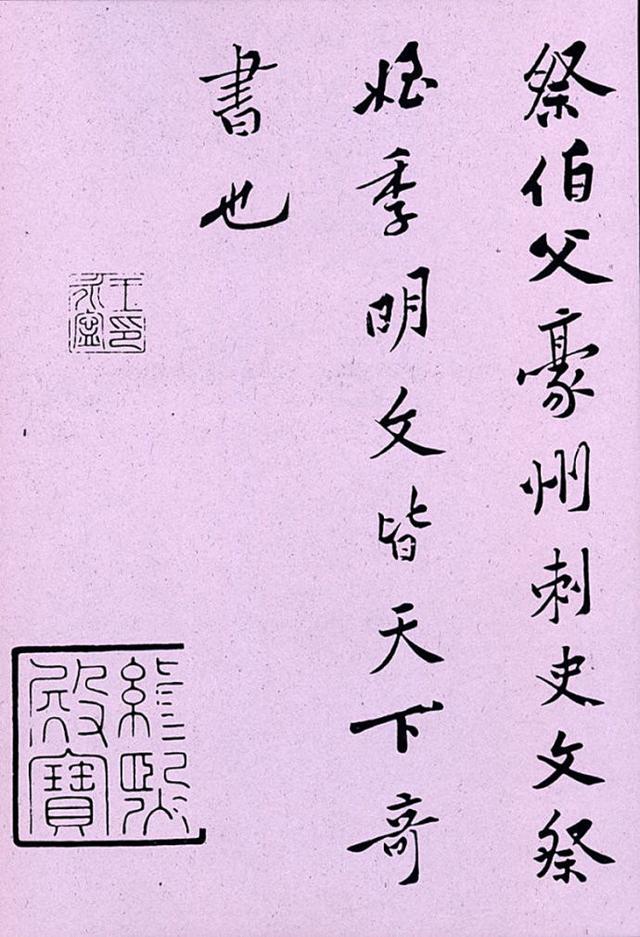 祭伯父豪州刺史文祭
姪季明文皆天下奇
書也
王印永寧
緝熙殿寶